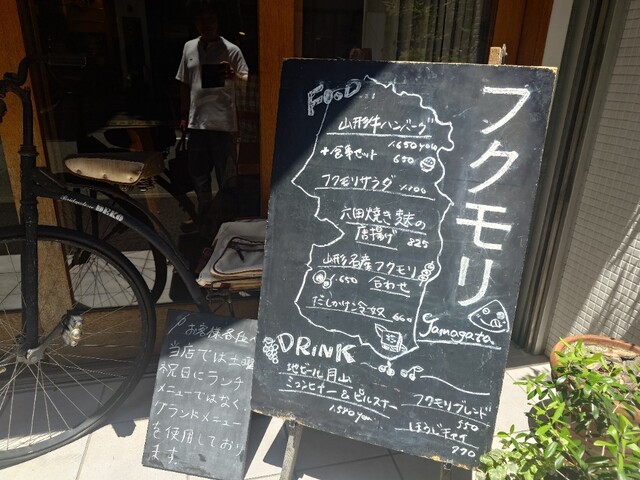 FOOD
山形牛ハンバーグ
1,650yen
+食事セット 650
フクモリサラダ 1,100
六田焼き麩の
唐揚げ 825
山形名産フクモリ
1,650 合わせ
だしかけ冷奴 660
フクモリ
Yamagata
DRiNK
地ビール月山
ミュンヒナー&ピルスナー
1,540yen
フクモリブレンド
550
ほうじチャイ
770
お客様各位
当店では土日
祝日にランチ
メニューではなく、
グランドメニュー
を使用しており
ます。